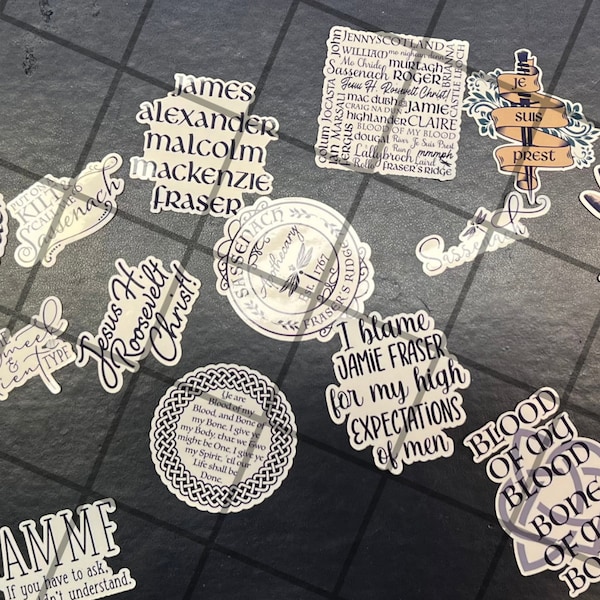 JAMES
ALEXANDER
MALCOLM
MACKENZIE
FRASER
John
JENNY SCOTLAND
WILLIAM mo nighean donn
BRIANNA
CASTLE LEOCH
Mo Chridhe MURTAGH
Sassenach ROGER
Jesus H. Roosevelt Christ!
JOCASTA
mac dubh JAMIE
CRAIG NA DUN
highlander CLAIRE
IAN MARSALI
BLOOD OF MY BLOOD
Colum
FERGUS
dougal Je Suis Prest
Lallybroch Laird mmmph
Rollo FRASER'S RIDGE
JE
SUIS
PREST
PUT ON A
KILT
& CALL ME
Sassenach
SASSENACH
Apothecary
EST. 1767
FRASER'S RIDGE
Sassenach
Sweet
&
TYPE
Jesus H.
Roosevelt
Christ!
I blame
JAMIE FRASER
for my high
EXPECTATIONS
of men
Ye are
Blood of my
Blood, and Bone of
my Bone. I give ye
my Body, that we Two
might be One. I give ye
my Spirit, 'til our
Life shall be
Done.
BLOOD
OF MY
BLOOD
BONE
OF M
BO
AMMF
If you have to ask,
dn't understand.